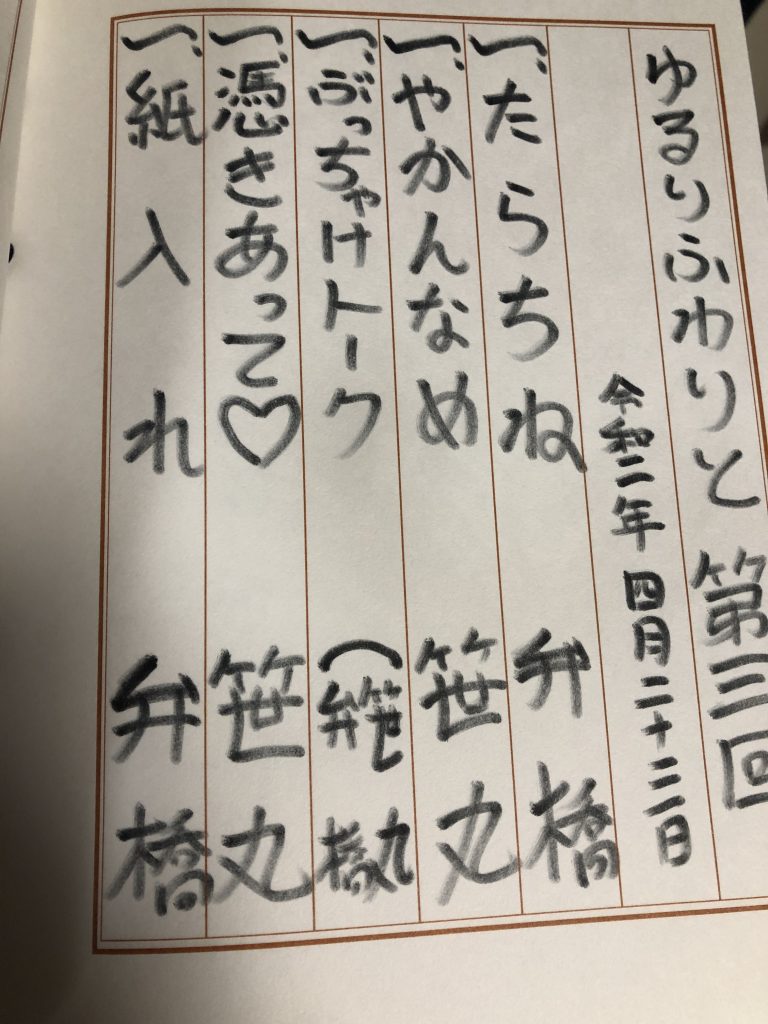 ゆるりふわりと 第三回
令和二年 四月二十三日
一、たらちね 弁橋
一、やかんなめ 笹丸
一、ぶっちゃけトーク (弁橋 笹丸
一、憑きあって♡ 笹丸
一、紙入れ 弁橋